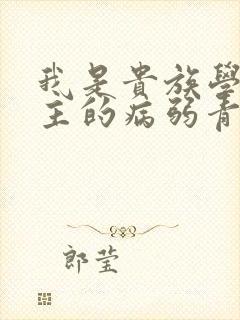 我是貴族學
主的病弱青
郎莹